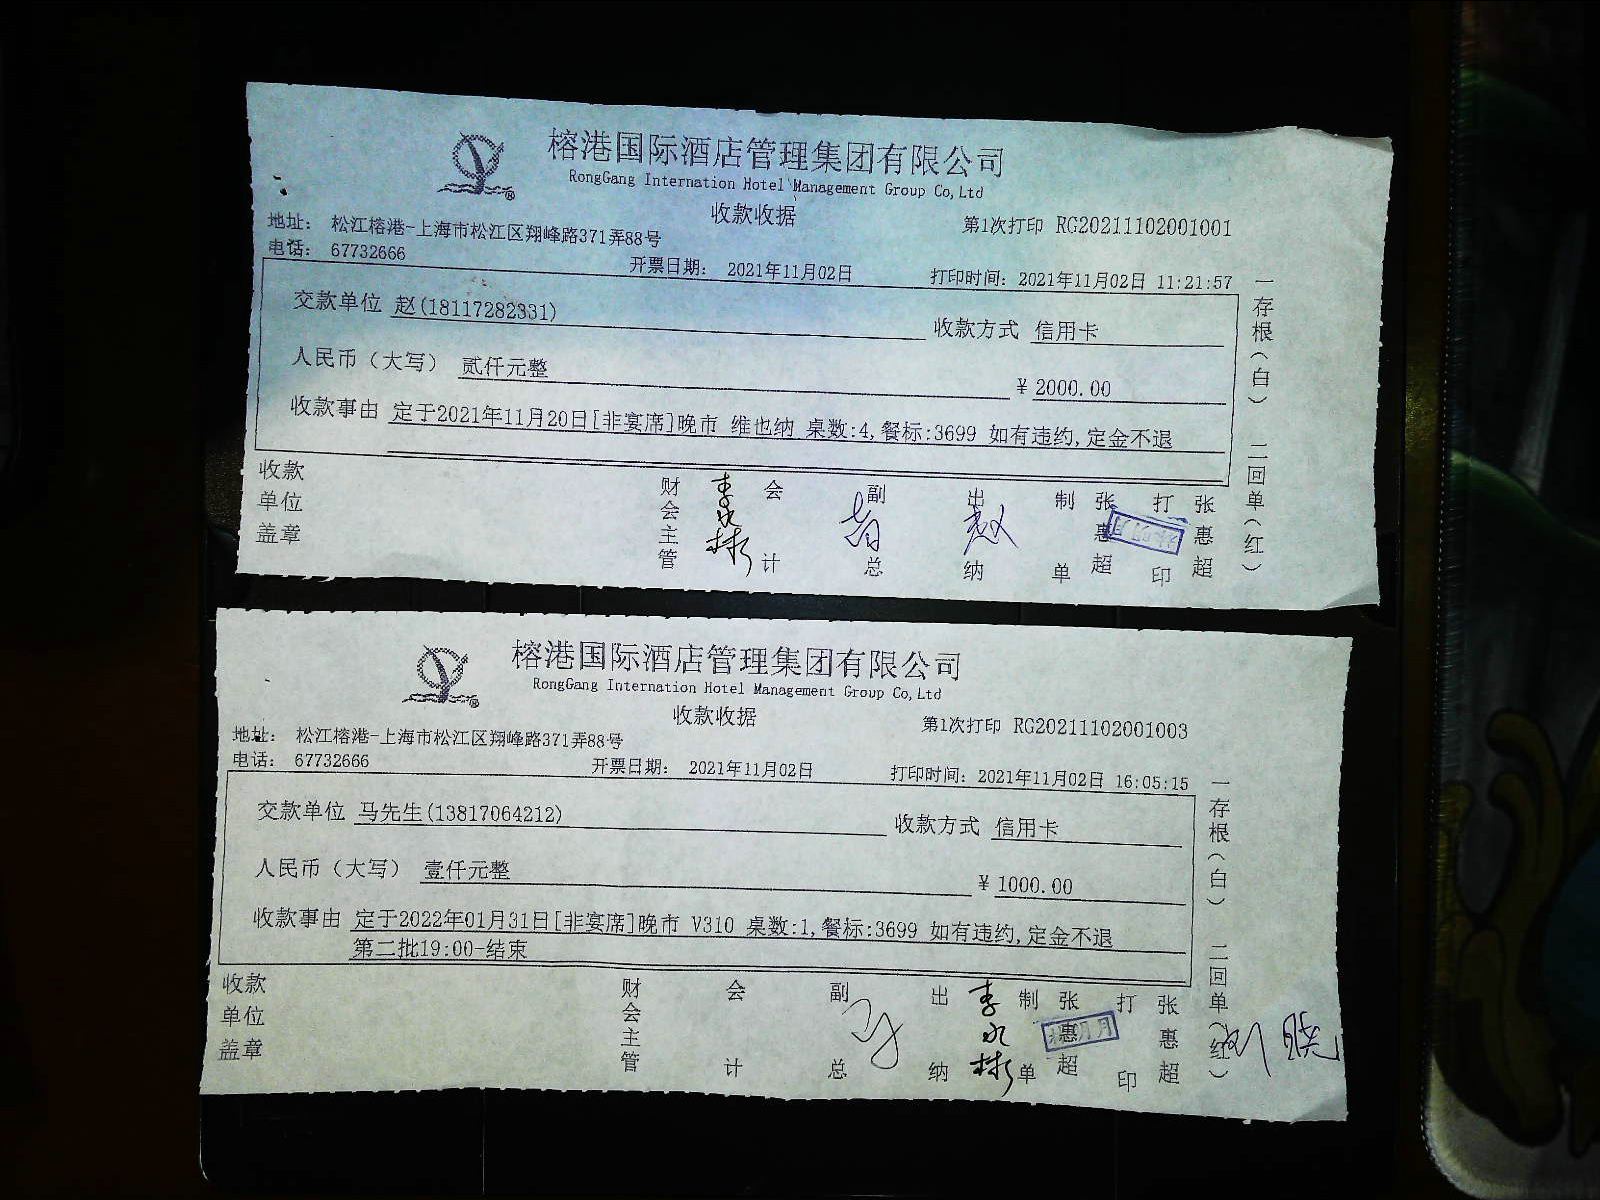 榕港国际酒店管理集团有限公司
RongGang Internation Hotel Management Group Co,Ltd
收款收据
第1次打印 RG20211102001001
地址: 松江榕港-上海市松江区翔峰路371弄88号
电话: 67732666
开票日期: 2021年11月02日
打印时间: 2021年11月02日 11:21:57
交款单位 赵(18117282331)
收款方式 信用卡
人民币(大写) 贰仟元整
¥ 2000.00
收款事由 定于2021年11月20日[非宴席]晚市 维也纳 桌数:4,餐标:3699 如有违约,定金不退
收款单位盖章
财会主管 李永彬
会计
副总
出纳 赵
制单 张惠超
打印 张惠超
一存根(白) 二回单(红)
榕港国际酒店管理集团有限公司
RongGang Internation Hotel Management Group Co,Ltd
收款收据
第1次打印 RG20211102001003
地址: 松江榕港-上海市松江区翔峰路371弄88号
电话: 67732666
开票日期: 2021年11月02日
打印时间: 2021年11月02日 16:05:15
交款单位 马先生(13817064212)
收款方式 信用卡
人民币(大写) 壹仟元整
¥ 1000.00
收款事由 定于2022年01月31日[非宴席]晚市 V310 桌数:1,餐标:3699 如有违约,定金不退
第二批19:00-结束
收款单位盖章
财会主管
会计
副总
出纳 李永彬
制单 张惠超
打印 张惠超
一存根(白) 二回单(红)